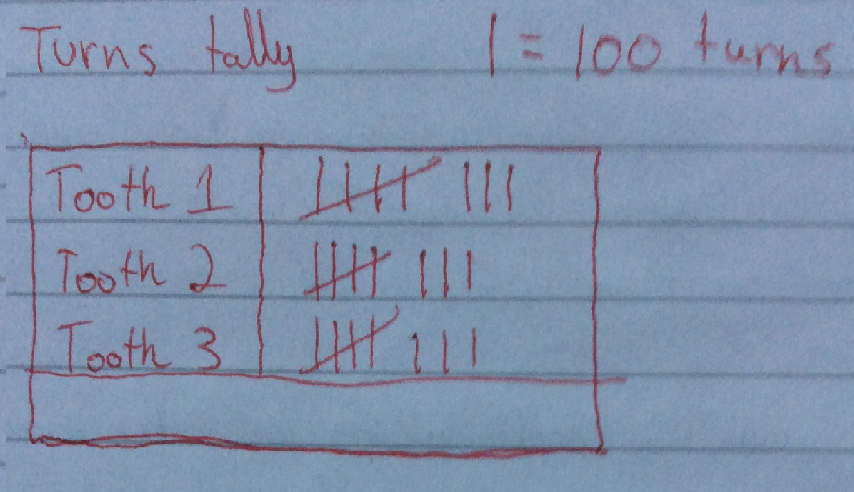 Turns tally | = 100 turns
Tooth 1 卌 |||
Tooth 2 卌 |||
Tooth 3 卌 |||